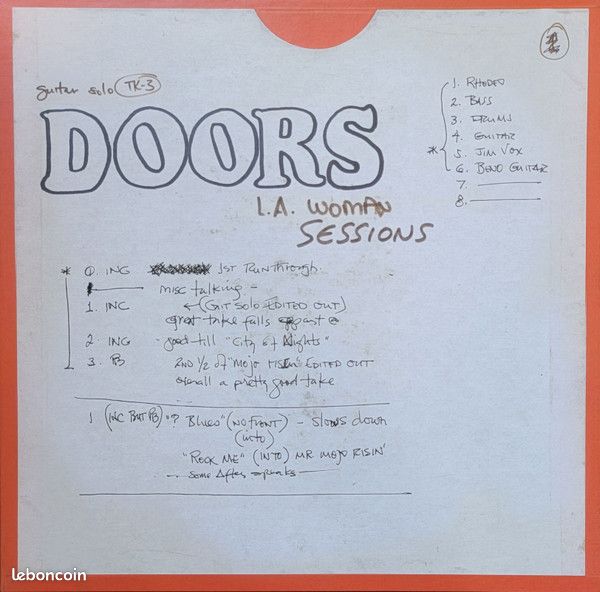 guitar solo TK-3
DOORS
L.A. WOMAN
SESSIONS
1. RHODES
2. BASS
3. DRUMS
4 GUITAR
* 5. JIM VOX
6. BEND GUITAR
7.
8.
* 0. ING 1ST RUNTHROUGH.
misc talking -
1. INC ←(GIT SOLO EDITED OUT)
great take falls apart @
2. ING - good till "City of Nights"
3. PB 2ND 1/2 of "Mojo RISEN" EDITED OUT
overall a pretty good take
1 (INC BUT PB) "? Blues" (NO FRONT) - slows down
(into)
"ROCK ME" (INTO) MR MOJO RISIN'
-- some After speaks
leboncoin